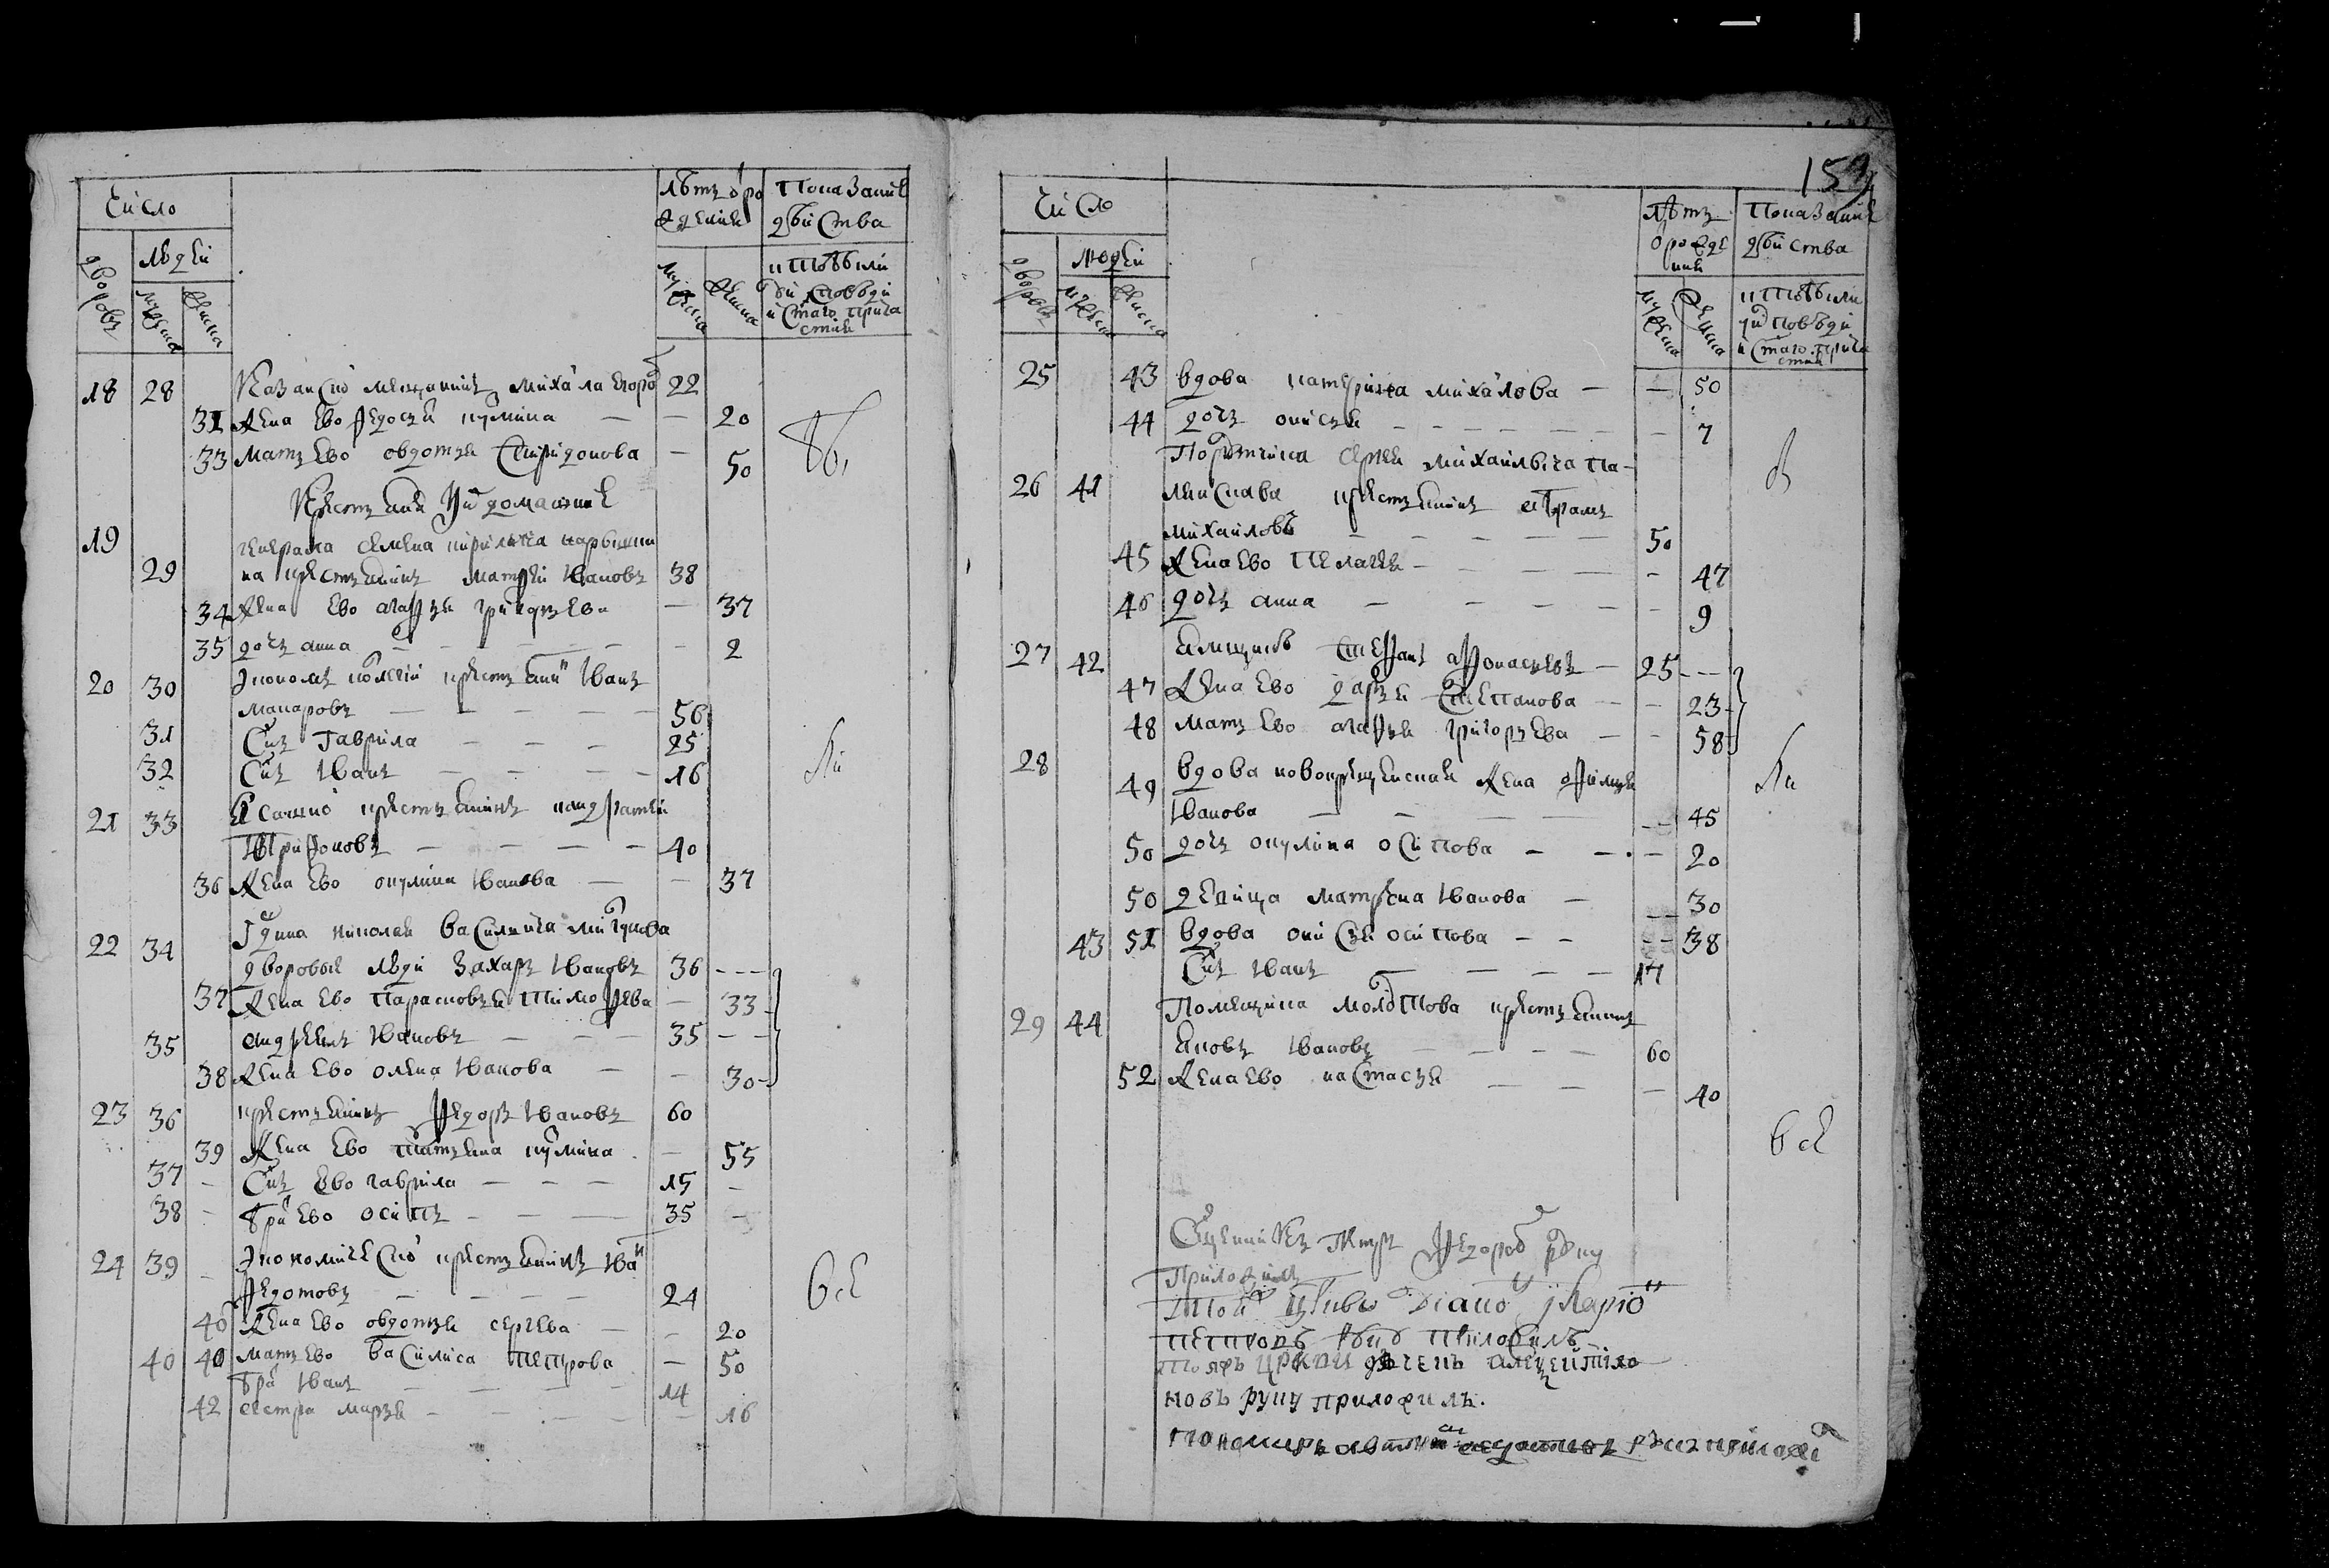 Число
Лѣтъ о ро
ждении
Показание
действа
дворовъ
людей
мужска
женска
мужска
женска
кто были
у исповеди
и стаго прича
стия
18 28 Казанской мещанинъ михаила егоровъ 22
31 Жена ево федосья кузмина — — 20
33 Мать ево овдотья Спиридонова — 50
Крестьяни и их домашние
19 генерала семена кирилыча нарышки
29 на крестьянинъ матфей Ивановъ 38
34 Жена ево агафья григорьева — 37
35 дочь анна — — — 2
20 30 Экономъ комссии крестьяни Иванъ
макаровъ — — — — 56
31 Сынъ Гаврила — — — 25
32 Сынъ Иванъ — — — — 16
21 33 Ясашной крестьянинъ кандратей
Трифоновъ — — — — 40
36 Жена ево окулина Иванова — — 37
22 34 Гдина николая Василича
дворовые люди Захаръ Ивановъ 36 ---
37 Жена ево парасковья Тимофева — 33
35 андреянъ Ивановъ — — — 35 --
38 Жена ево олена Иванова — — 30
23 36 крестьянинъ Федоръ Ивановъ 60
39 Жена ево татьяна кузмина — 55
37 Сынъ Ево гаврила — — — 15 —
38 — братъ ево осипъ — — — 35 —
24 39 — Экономической крестьянинъ Иванъ
Федотовъ — — — — 24
40 Жена ево овдотья сергева — — 20
40 40 мать ево василиса Петрова — 50
братъ Иванъ — — — — 14
42 сестра марья — — — — — 16
всѣ
153
Число
Лѣтъ
о рожде
ния
Показание
действа
дворовъ
людей
мужска
женска
мужска
женска
кто были
у исповѣди
и стаго прича
стия
25 43 вдова катерина михайлова — — 50
44 дочь онисья — — — — — — — 7
Порутчика сергея михайлыча па-
26 41 крестьянинъ абрамъ
михаиловъ — — — — — 50
45 Жена ево Пелагея — — — — — 47
46 дочь анна — — — — — 9
27 42 ямщикъ Степанъ афонасьевъ — 25 ---
47 Жена ево дарья Степанова — — 23
48 мать ево агафья григорьева — — 58
28 49 вдова новокрещенская жена офимья
Иванова — — — — — 45
50 дочь окулина осипова — — — 20
50 девица матрена Иванова — — 30
43 51 вдова онисья осипова — — — 38
Сынъ Иванъ — — — — 17
29 44 Помещика крестьянинъ
яковъ Ивановъ — — — — 60
52 Жена ево настасья — — — 40
всѣ
Священникъ Петръ Федоровъ руку
Приложилъ
петровъ приложилъ
тояжъ церкви дьячекъ алексей
новъ руку приложилъ.
пономарь руку приложи